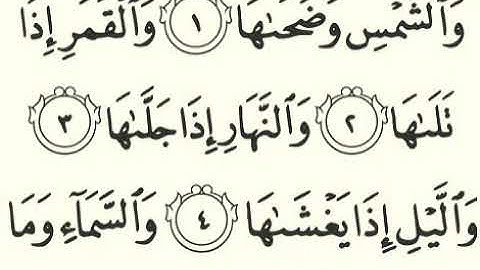 وَٱلشَّمْسِ وَضُحَىٰهَا ١ وَٱلْقَمَرِ إِذَا
تَلَىٰهَا ٢ وَٱلنَّهَارِ إِذَا جَلَّىٰهَا ٣
وَٱلَّيْلِ إِذَا يَغْشَىٰهَا ٤ وَٱلسَّمَآءِ وَمَا